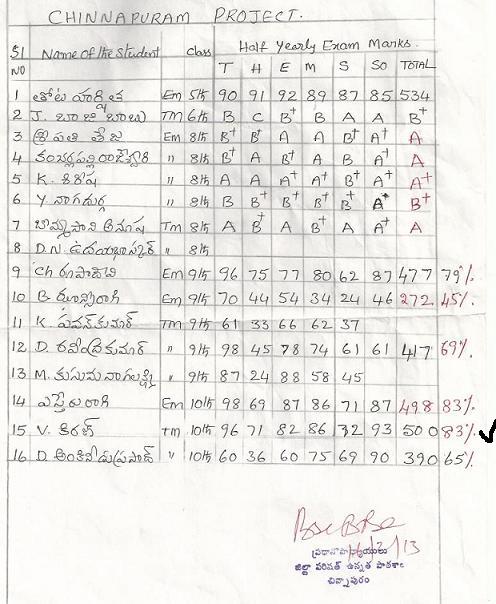 CHINNAPURAM PROJECT.
Half Yearly Exam Marks.
Sl NO Name of the Student class T H E M S So TOTAL
1 తోట హర్షిత Em 5th 90 91 92 89 87 85 534
2 J. బాజి బాబు TM 6th B C B+ B A A B+
3 శ్రీపతి తేజ Em 8th B+ B+ A A B+ A+ A
4 రాజేశ్వరి " 8th B+ A B+ A B A+ A
5 K. శిరీష " 8th A A A A+ B+ A+ A+
6 Y నాగదుర్గ " 8th B B+ B+ B+ B+ A+ B+
7 అనూష Tm 8th A B+ A B+ A A+ A
8 D.N. ఉదయభాస్కర్ " 8th
9 Ch రూపాదేవి Em 9th 96 75 77 80 62 87 477 79%
10 B. ఝాన్సీరాణి Em 9th 70 44 54 34 24 46 272 45%
11 K. పవన్ కుమార్ TM 9th 61 33 66 62 37
12 D. రవీంద్రకుమార్ " 9th 98 45 78 74 61 61 417 69%
13 M. కుసుమ నాగలక్ష్మి " 9th 87 24 88 58 45
14 ఎస్తేరు రాణి Em 10th 98 69 87 86 71 87 498 83%
15 V. కిరణ్ TM 10th 96 71 82 86 72 93 500 83%
16 D. అంకినీడు ప్రసాద్ " 10th 60 36 60 75 69 90 390 65%
ప్రధానోపాధ్యాయులు
జిల్లా పరిషత్ ఉన్నత పాఠశాల
చిన్నాపురం